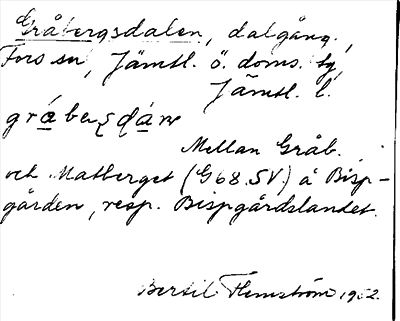 Gråbergsdalen, dalgång,
Fors sn, Jämtl. ö. doms. tg,
Jämtl. l.
Mellan Gråb.
och Matberget (G68.SV.) å Bisp-
gården, resp. Bispgårdslandet.
Bertil Flemström 1952.